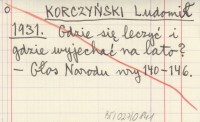 KORCZYŃSKI Ludomił
1931. Gdzie się leczyć i
gdzie wyjechać na lato?
– Głos Narodu nry 140-146.